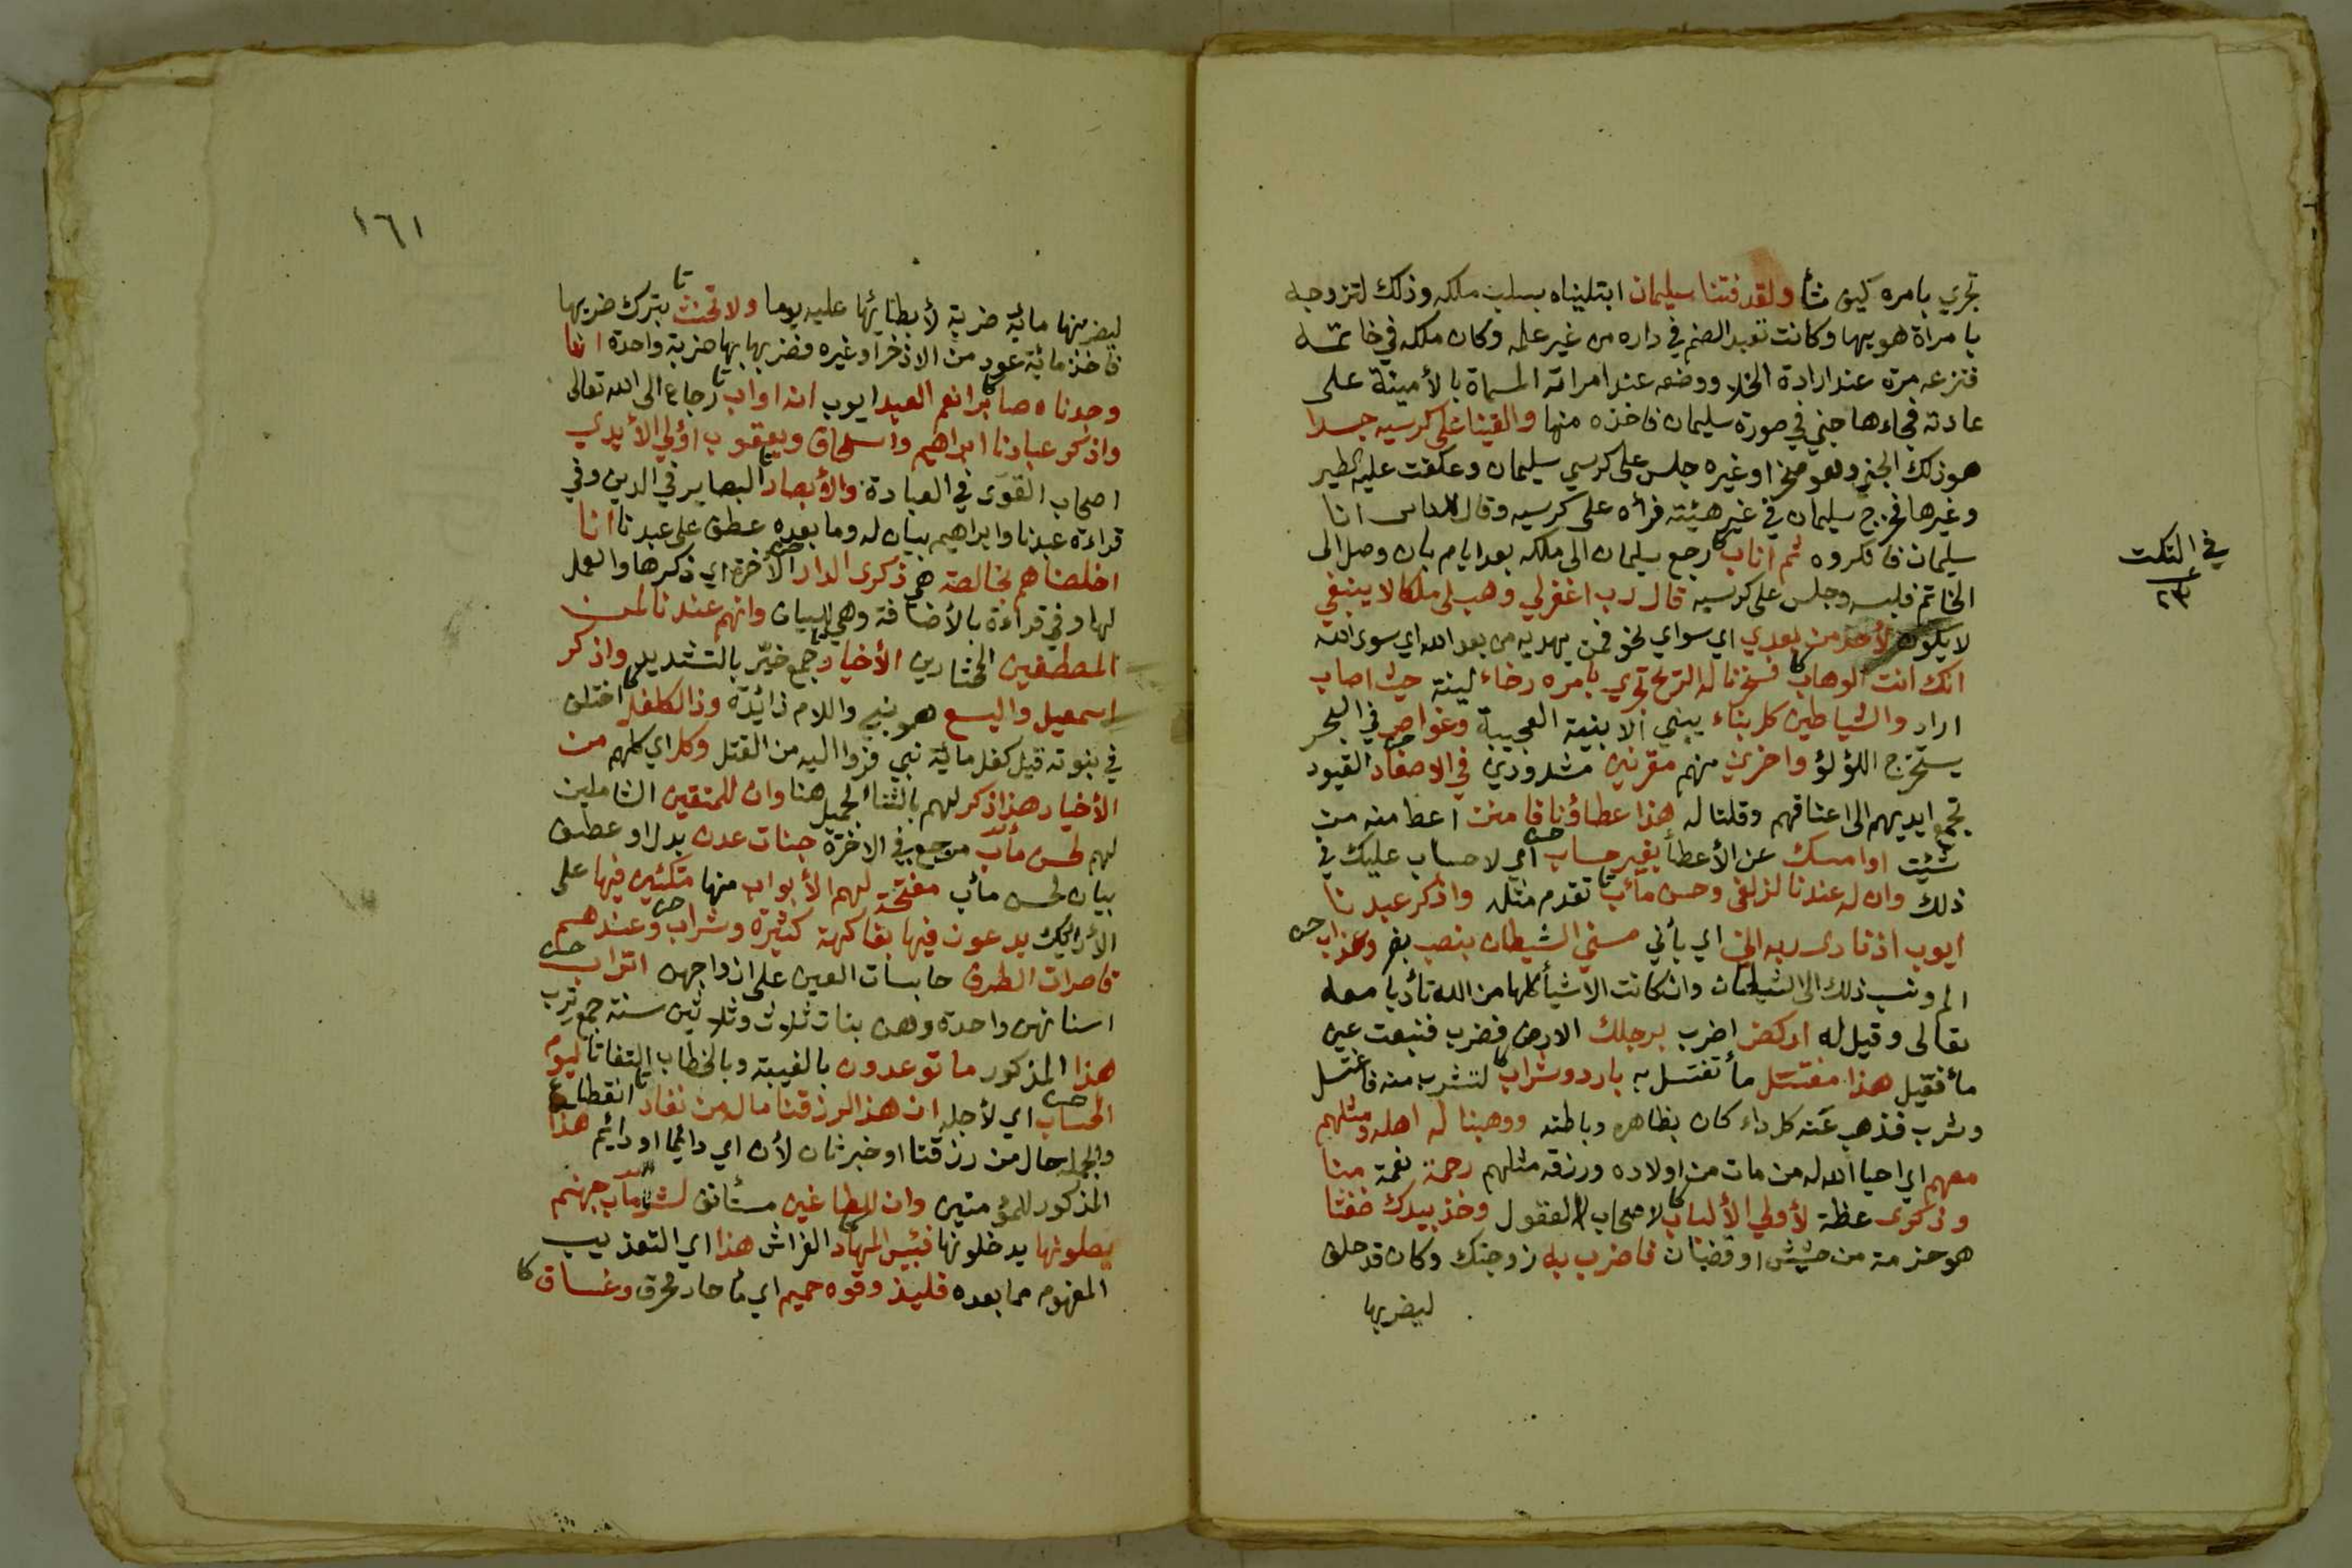 تجري بامره كيف شأ ولقد فتنا سليمان ابتليناه بسلب ملكه وذلك لتزوجه
بامراة هويها وكانت تعبد الصنم في داره من غير علمه وكان ملكه في خاتمه
فنزعه مرة عند ارادة الخلا ووضعه عند امراته المسماة بالأمينة على
عادته فجاءها جني في صورة سليمان فاخذه منها والقينا على كرسيه جسدا
هو ذلك الجني وهو صخر او غيره جلس على كرسي سليمان وعكفت عليه الطير
وغيرها فخرج سليمان في غير هيئته فرأه على كرسيه وقال للناس انا
سليمان فانكروه ثم اناب رجع سليمان الى ملكه بعد ايام بان وصل الى
الخاتم فلبسه وجلس على كرسيه قال رب اغفر لي وهب لي ملكا لا ينبغي
لا يكون لأحد من بعدي اي سواي نحو فمن يهديه من بعد الله اي سوى الله
انك انت الوهاب فسخرنا له الريح تجري بامره رخاء لينة حيث اصاب
اراد والشياطين كل بناء يبني الابنية العجيبة وغواص في البحر
يستخرج اللؤلؤ واخرين منهم مقرنين مشدودين في الاصفاد القيود
تجمع ايديهم الى اعناقهم وقلنا له هذا عطاؤنا فامنن اعط منه من
شئت او امسك عن الأعطأ بغير حساب اي لا حساب عليك في
ذلك وان له عندنا لزلفى وحسن مأب تقدم مثله واذكر عبدنا
ايوب اذ نادى ربه اني اي بأني مسني الشيطان بنصب بضر وعذاب
الم ونسب ذلك الى الشيطان وان كانت الاشيأ كلها من الله تأدبا معه
تعالى وقيل له اركض اضرب برجلك الارض فضرب فنبعت عين
مأ فقيل هذا مغتسل مأ تغتسل به بارد وشراب لتشرب منه فاغتسل
وشرب فذهب عنه كل داء كان بظاهره وباطنه ووهبنا له اهله ومثلهم
معهم اي احيا الله له من مات من اولاده ورزقه مثلهم رحمة نعمة منا
وذكرى عظة لأولي الألباب لاصحاب العقول وخذ بيدك ضغثا
هو حزمة من حشيش او قضبان فاضرب به زوجتك وكان قد حلف
ليضربها
في النكت
١٦١
ليضربنها مائة ضربة لأبطائها عليه يوما ولا تحنث بترك ضربها
فاخذ مائة عود من الاذخر او غيره فضربها بها ضربة واحدة انا
وجدناه صابرا نعم العبد ايوب انه اواب رجاع الى الله تعالى
واذكر عبادنا ابراهيم واسحاق ويعقوب اولي الأيدي
اصحاب القوى في العبادة والأبصار البصاير في الدين وفي
قراءة عبدنا وابراهيم بيان له وما بعده عطف على عبدنا انا
اخلصناهم بخالصة هي ذكرى الدار الأخرة اي ذكرها والعمل
لها وفي قراءة بالأضافة وهي للبيان وانهم عندنا لمن
المصطفين المختارين الأخيار جمع خيّر بالتشديد واذكر
اسمعيل واليسع هو نبي واللام زائدة وذا الكفل اختلف
في نبوته قيل كفل مائة نبي فروا اليه من القتل وكل اي كلهم من
الأخيار هذا ذكر لهم بالثنا الجميل هنا وان للمتقين الشاملين
لهم لحسن مأب مرجع في الاخرة جنات عدن بدل او عطف
بيان لحسن مأب مفتحة لهم الأبواب منها متكئين فيها على
الأرائك يدعون فيها بفاكهة كثيرة وشراب وعندهم
قاصرات الطرف حابسات العين على ازواجهن اتراب
اسنانهن واحدة وهن بنات ثلاث وثلاثين سنة جمع ترب
هذا المذكور ما توعدون بالغيبة وبالخطاب التفاتا ليوم
الحساب اي لأجله ان هذا لرزقنا ماله من نفاد انقطاع
والجملة حال من رزقنا او خبر ثان لأن اي دائما او دائم هذا
المذكور للمؤمنين وان للطاغين مستأنف لشر مآب جهنم
يصلونها يدخلونها فبئس المهاد الفراش هذا اي التعذيب
المفهوم مما بعده فليذوقوه حميم اي مأ حار محرق وغساق